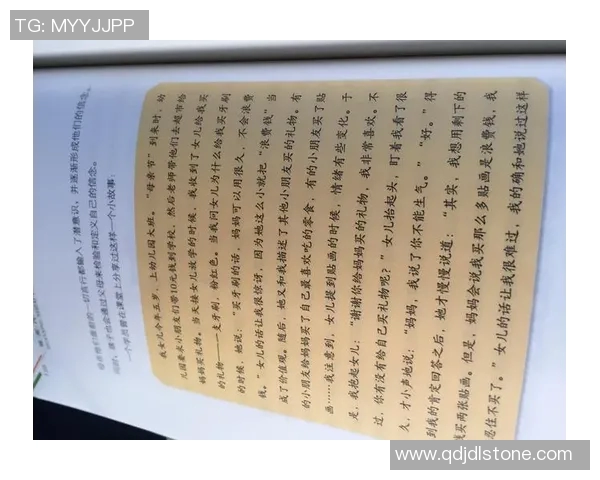 TG: MYYJJPP
们面前的一切言行都输入了潜意识，并逐渐形成他们的信念。
同时，孩子也会通过父母来检验和定义自己的信念。
一个学员曾在课堂上分享过这样一个小故事：
我女儿今年五岁，上幼儿园大班。“母亲节”到来时，幼
儿园要求小朋友们带10元钱到学校，然后老师带他们去超市给
妈妈买礼物。当天接女儿放学的时候，我收到了女儿给我买
的礼物——一支牙刷，粉红色。当我问女儿为什么给我买牙刷
的时候，她说：“买牙刷的话，妈妈可以用很久，不会浪费
钱。”女儿的话让我很惊讶，因为她这么小就把“浪费钱”当
成了价值观。随后，她又和我描述了其他小朋友买的礼物。有
的小朋友给妈妈买了自己最喜欢吃的零食，有的小朋友买了贴
画……我注意到，女儿提到贴画的时候，情绪有些变化。于
是，我抱起女儿：“谢谢你给妈妈买的礼物，我非常喜欢。不
过，你有没有给自己买礼物呢？”女儿抬起头，盯着我看了很
久，才小声地说：“妈妈，我说了你不能生气。”“好。”得
到我的肯定回答之后，她才慢慢说道：“其实，我想用剩下的
买两张贴画。但是，妈妈会说我买那么多贴画是浪费钱，我
忍住不买了。”女儿的话让我很难过，我的确和她说过这样
www.qdjdlstone.com